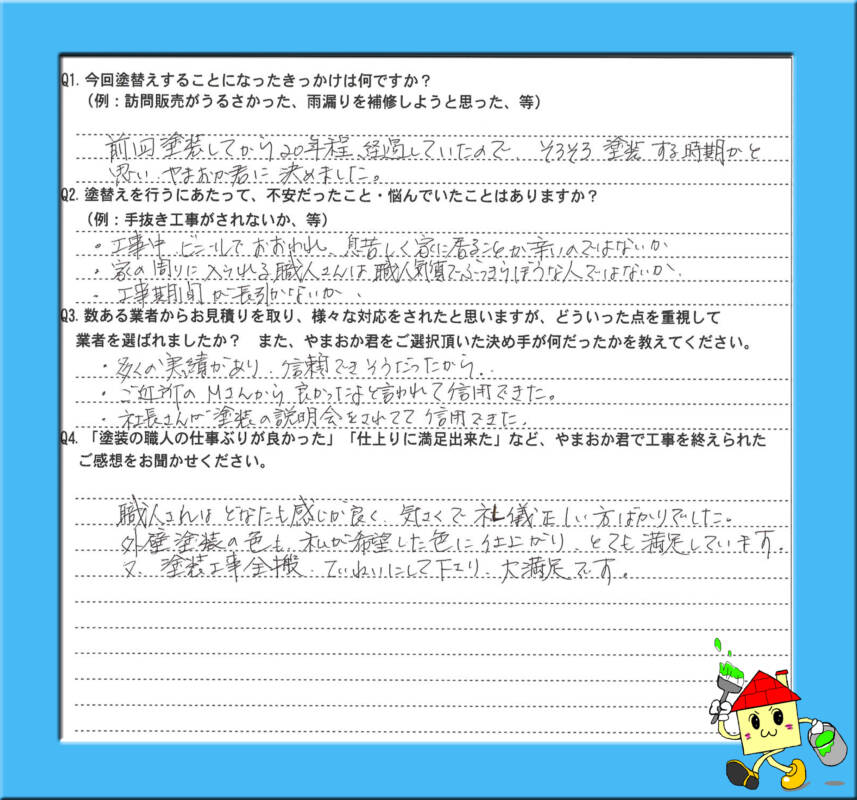 Q1. 今回塗替えすることになったきっかけは何ですか？
（例：訪問販売がうるさかった、雨漏りを補修しようと思った、等）
前回塗装してから20年程、経過していたので、そろそろ塗装する時期かと
思い、やまおか君に決めました。
Q2. 塗替えを行うにあたって、不安だったこと・悩んでいたことはありますか？
（例：手抜き工事がされないか、等）
・工事中、ビニールでおおわれ、息苦しく家に居ることが辛いのではないか
・家の周りに入られる職人さんは職人気質でぶっきらぼうな人ではないか、
・工事期間が長引かないか、
Q3. 数ある業者からお見積りを取り、様々な対応をされたと思いますが、どういった点を重視して
業者を選ばれましたか？　また、やまおか君をご選択頂いた決め手が何だったかを教えてください。
・多くの実績があり、信頼できそうだったから、
・ご近所のMさんから良かったよと言われて信用できた。
・社長さんが塗装の説明会をされてて信用できた、
Q4. 「塗装の職人の仕事ぶりが良かった」「仕上りに満足出来た」など、やまおか君で工事を終えられた
ご感想をお聞かせください。
職人さんは どなたも感じが良く、気さくで礼儀正しい方ばかりでした。
外壁塗装の色も、私が希望した色に仕上がり、とても満足しています。
又、塗装工事全搬、ていねいにして下さり、大満足です。